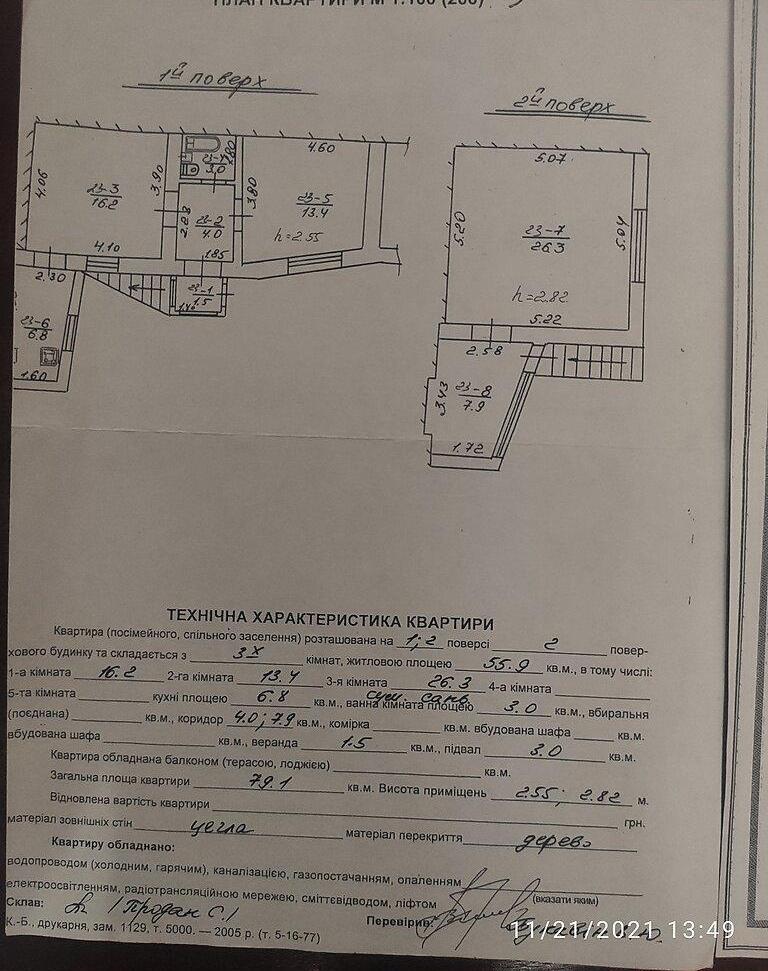 ПЛАН КВАРТИРИ М 1:100 (200)
1й поверх
2й поверх
4.06
23-3
16.2
3.90
4.10
23-4
3,0
1.80
2.08
23-2
4.0
1.85
3.80
4.60
23-5
13.4
h=2.55
23-1
1.5
1.40
2.30
23-6
6.8
1.60
5.07
5.20
23-7
26.3
5.04
h=2.82
5.22
2.58
3.43
23-8
7.9
1.72
ТЕХНІЧНА ХАРАКТЕРИСТИКА КВАРТИРИ
Квартира (посімейного, спільного заселення) розташована на 1; 2 поверсі 2 повер-
хового будинку та складається з 3х кімнат, житловою площею 55.9 кв.м., в тому числі:
1-а кімната 16.2 2-га кімната 13.4 3-я кімната 26.3 4-а кімната
5-та кімната кухні площею 6.8 кв.м., ванна кімната площею сум. сань 3.0 кв.м., вбиральня
(поєднана) кв.м., коридор 4.0; 7.9 кв.м., комірка кв.м. вбудована шафа кв.м.
вбудована шафа кв.м., веранда 1.5 кв.м., підвал 3.0 кв.м.
Квартира обладнана балконом (терасою, лоджією) кв.м.
Загальна площа квартири 79.1 кв.м. Висота приміщень 2.55; 2.82 м.
Відновлена вартість квартири грн.
матеріал зовнішніх стін цегла матеріал перекриття дерево
Квартиру обладнано:
водопроводом (холодним, гарячим), каналізацією, газопостачанням, опаленням
електроосвітленням, радіотрансляційною мережею, сміттєвідводом, ліфтом (вказати яким)
Склав: /Продан С./ Перевірив:
К.-Б., друкарня, зам. 1129, т. 5000. — 2005 р. (т. 5-16-77)
11/21/2021 13:49